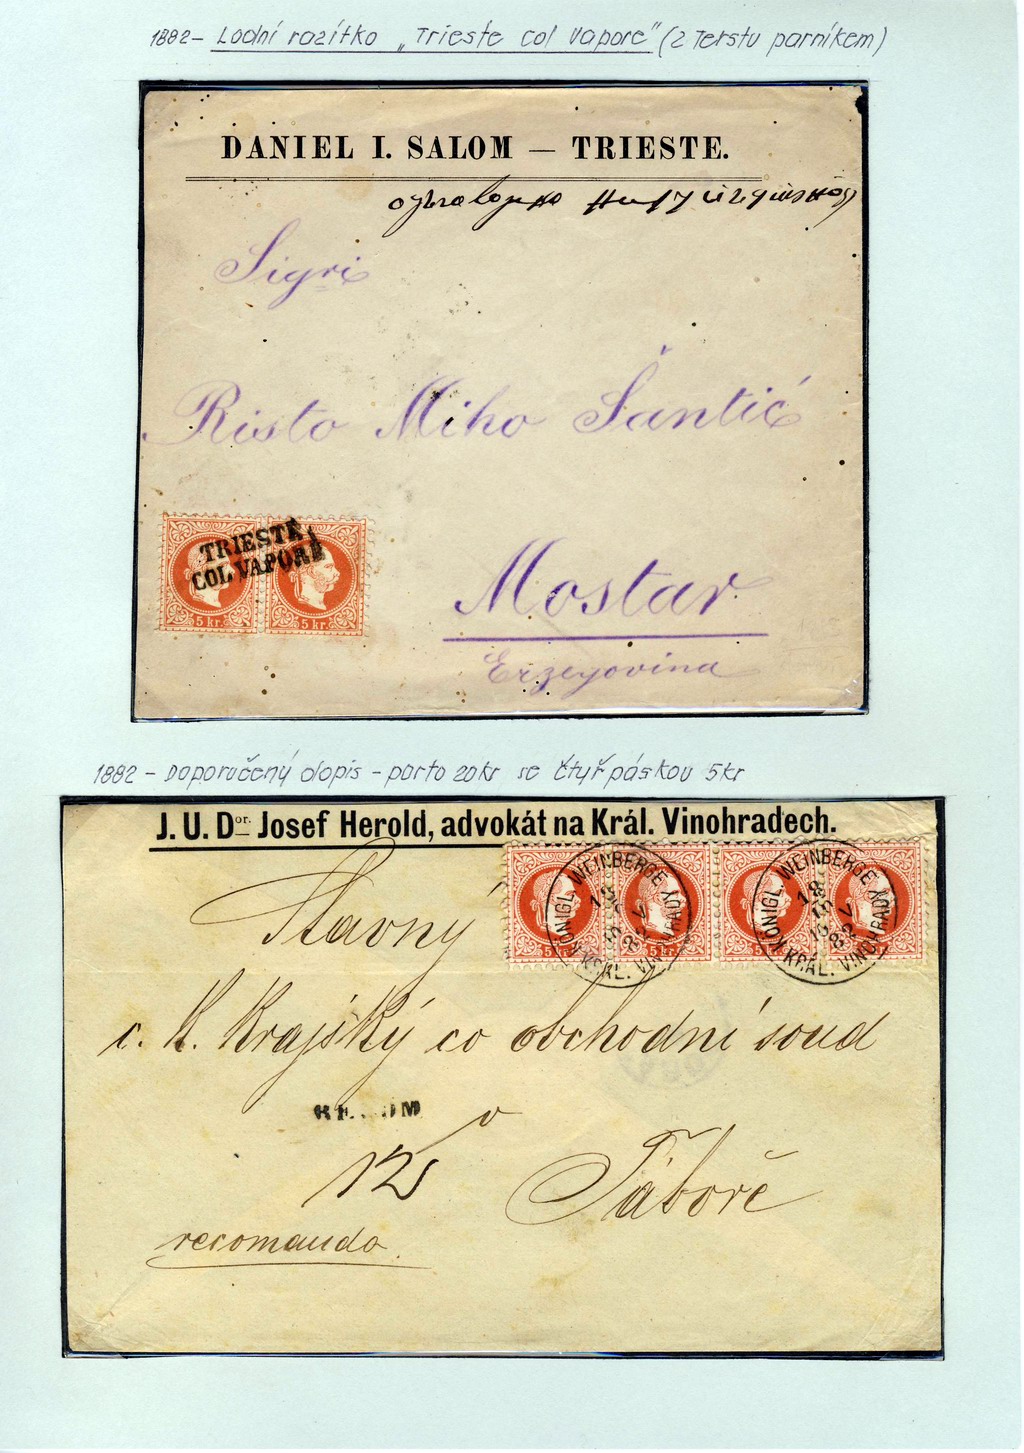 1882 - Lodní razítko „Trieste col Vapore" (z Terstu parníkem)
DANIEL I. SALOM — TRIESTE.
Sigri
Risto Miho Šantić
TRIESTE
COL VAPORE
5 kr. 5 kr.
Mostar
Erzegovina
1882 - Doporučený dopis - porto 20kr se čtyřpáskou 5kr
J. U. Dor. Josef Herold, advokát na Král. Vinohradech.
KÖNIGL. WEINBERGE KRÁL. VINOHRADY
KÖNIGL. WEINBERGE KRÁL. VINOHRADY
18 5 82
Slavný
c. k. Krajský co obchodní soud
v
Táboře
recomando